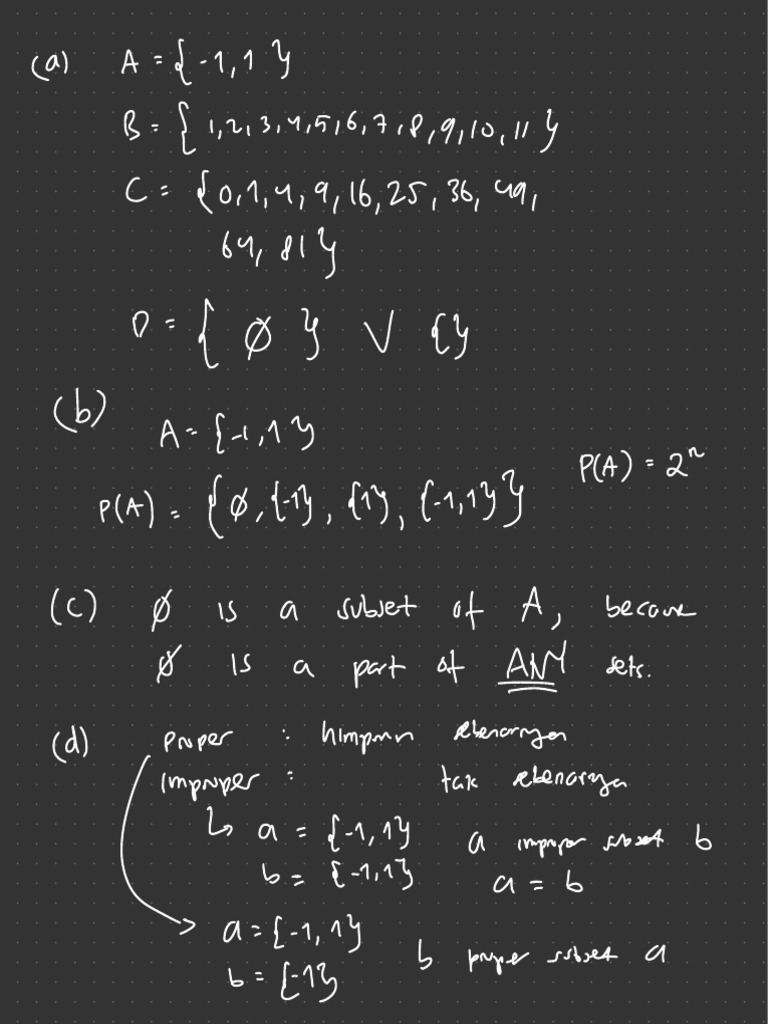 (a) A = {-1, 1}
B = {1, 2, 3, 4, 5, 6, 7, 8, 9, 10, 11}
C = {0, 1, 4, 9, 16, 25, 36, 49,
64, 81}
D = { ∅ } ∨ {}
(b)
A = {-1, 1}
P(A) = 2ⁿ
P(A) = {∅, {-1}, {1}, {-1, 1}}
(c) ∅ is a subset of A, because
∅ is a part of ANY sets.
(d) proper : himpunan sebenarnya
improper : tak sebenarnya
↳ a = {-1, 1} a improper subset b
b = {-1, 1} a = b
a = {-1, 1}
b = {-1} b proper subset a